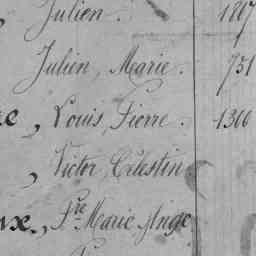 Julien.
Julien, Marie. 751
, Louis, Pierre. 1300
, Victor, Célestin
, Pre Marie Ange